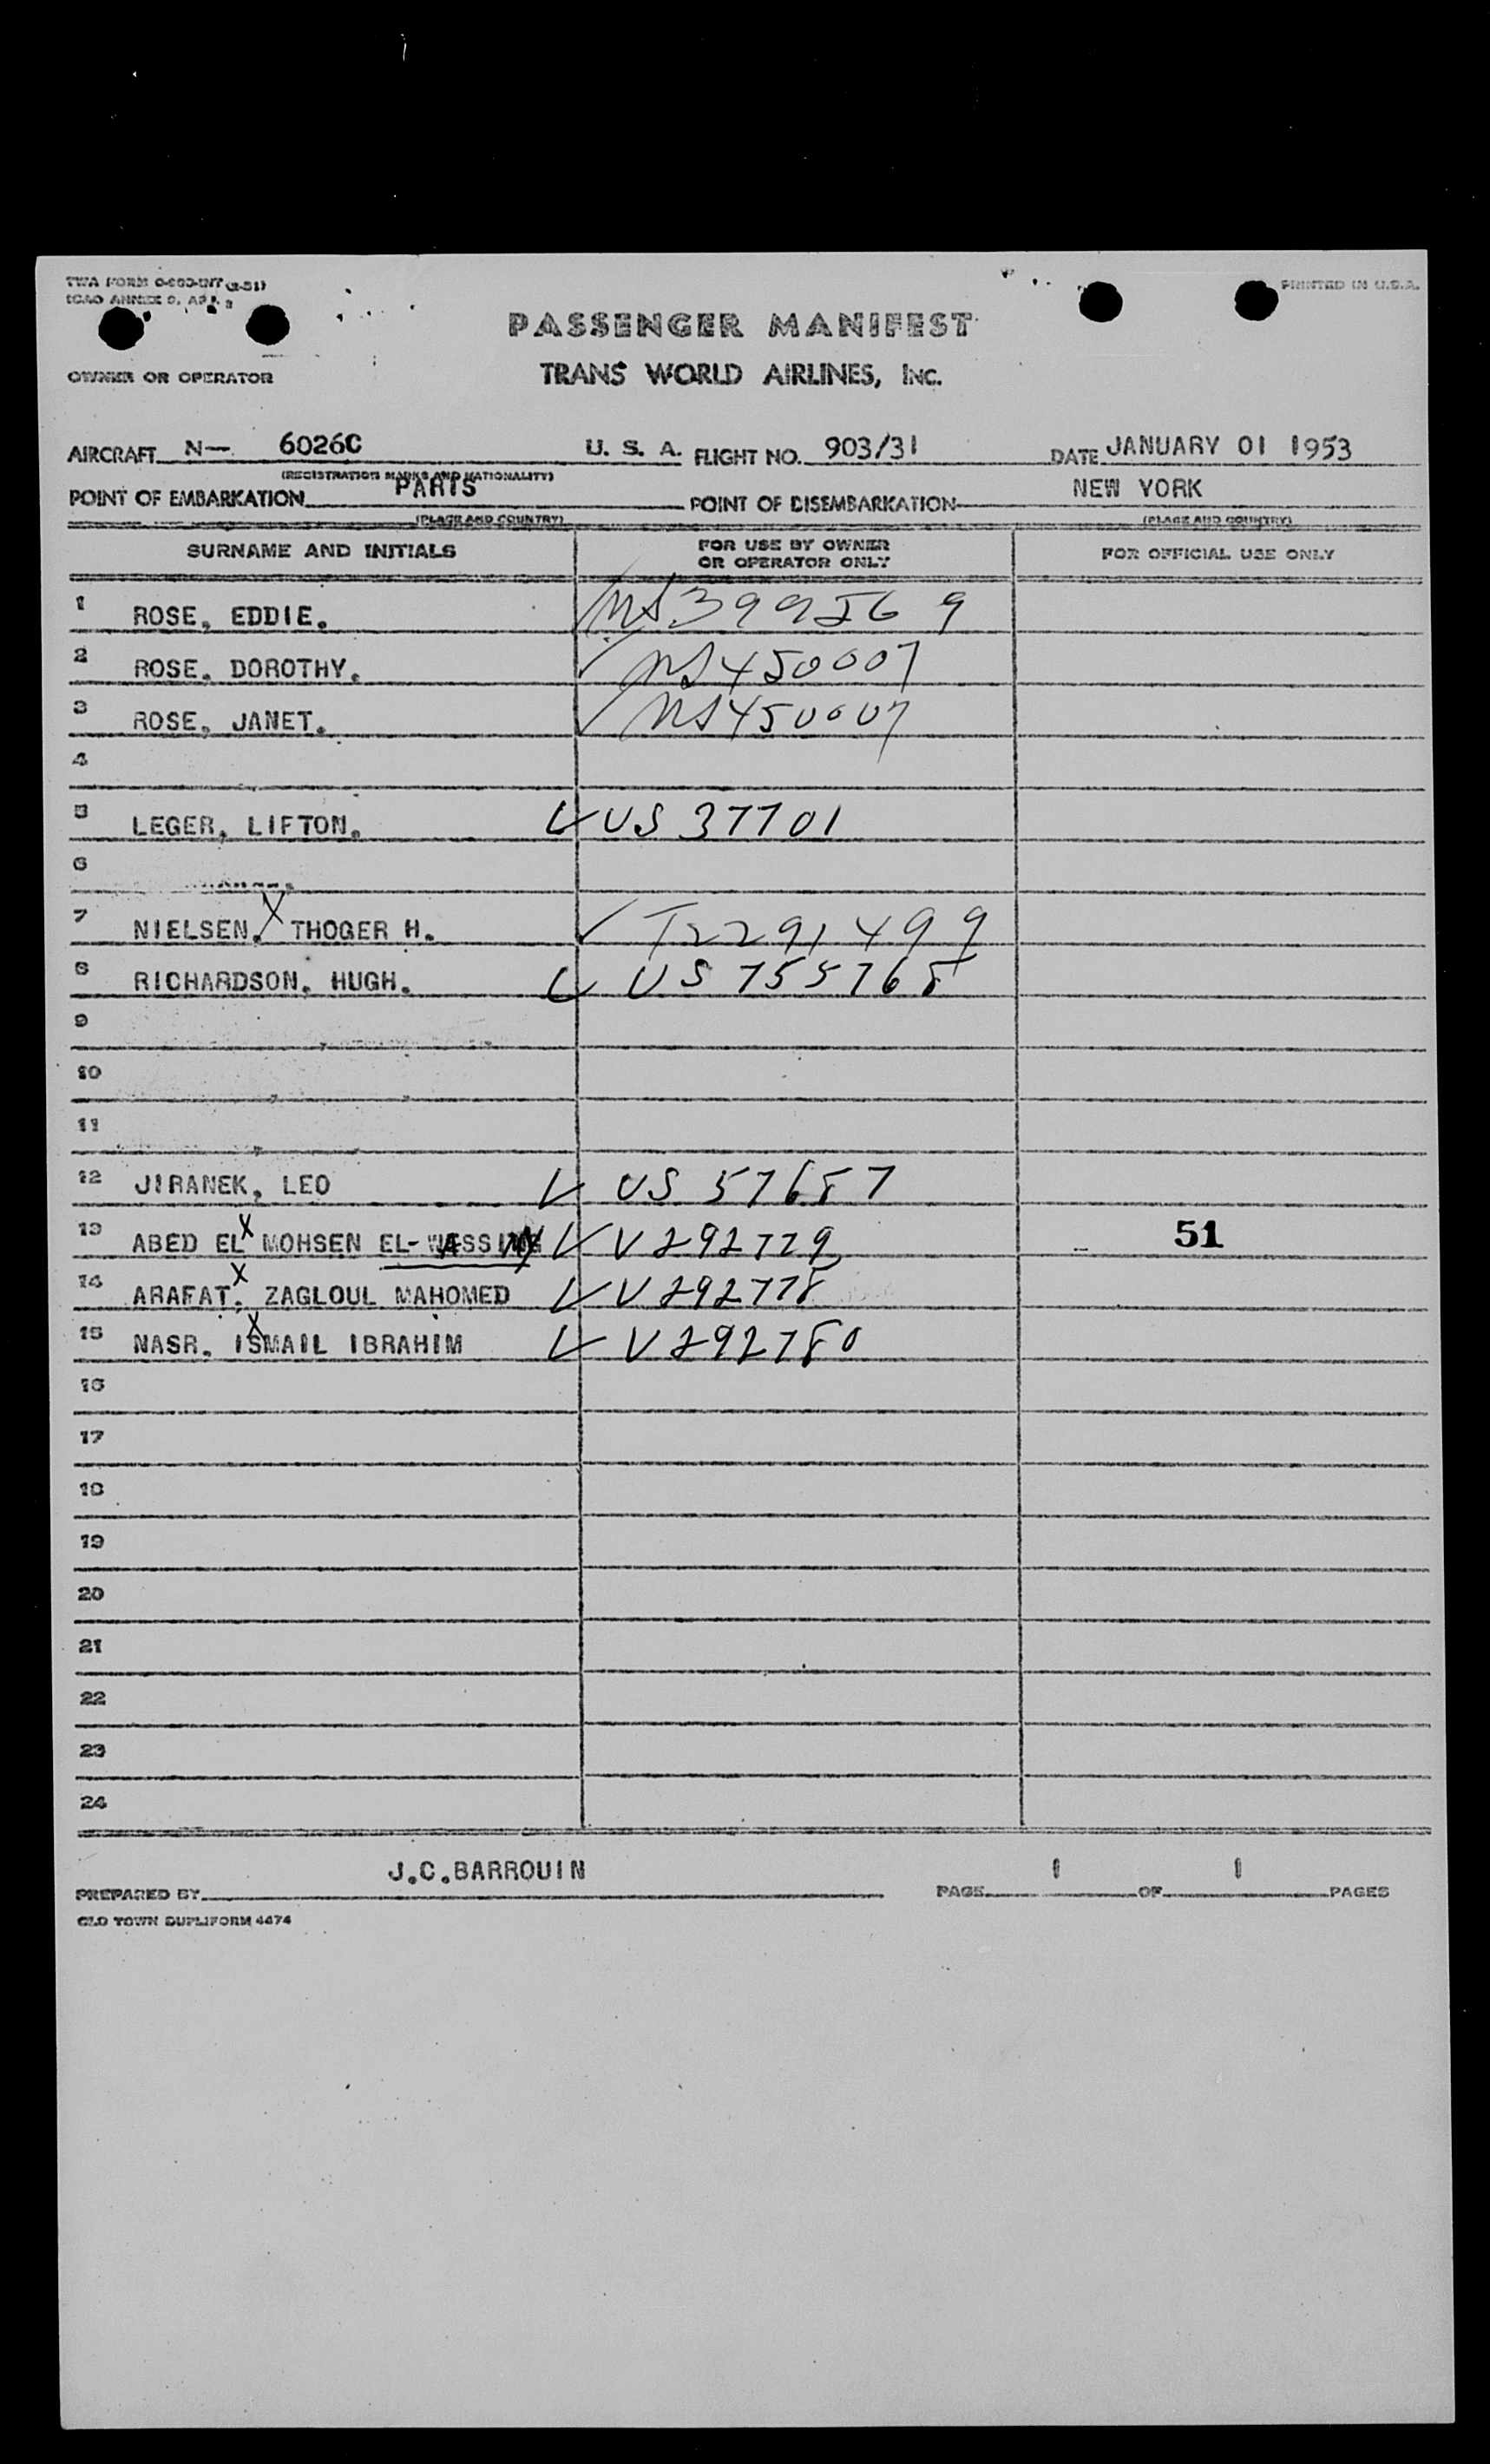 TWA FORM O-803-INT (2-51)
ICAO ANNEX 9, APP. 3
PRINTED IN U.S.A.
PASSENGER MANIFEST
OWNER OR OPERATOR TRANS WORLD AIRLINES, INC.
AIRCRAFT N— 6026C U. S. A. FLIGHT NO. 903/31 DATE JANUARY 01 1953
(REGISTRATION MARKS AND NATIONALITY)
POINT OF EMBARKATION PARIS POINT OF DISEMBARKATION NEW YORK
(PLACE AND COUNTRY) (PLACE AND COUNTRY)
SURNAME AND INITIALS FOR USE BY OWNER OR OPERATOR ONLY FOR OFFICIAL USE ONLY
1 ROSE, EDDIE. 399569
2 ROSE, DOROTHY. 450007
3 ROSE, JANET. 450007
4
5 LEGER, LIFTON. ✓ US 37701
6
7 NIELSEN, X THOGER H. ✓ T2291499
8 RICHARDSON, HUGH. ✓ US 755768
9
10
11
12 JIRANEK, LEO ✓ US 57687
13 ABED EL X MOHSEN EL- ✓ V292779 51
14 ARAFAT, X ZAGLOUL MAHOMED ✓ V292778
15 NASR, X ISMAIL IBRAHIM ✓ V292780
16
17
18
19
20
21
22
23
24
PREPARED BY J.C.BARROUIN PAGE 1 OF 1 PAGES
OLD TOWN DUPLIFORM 4474